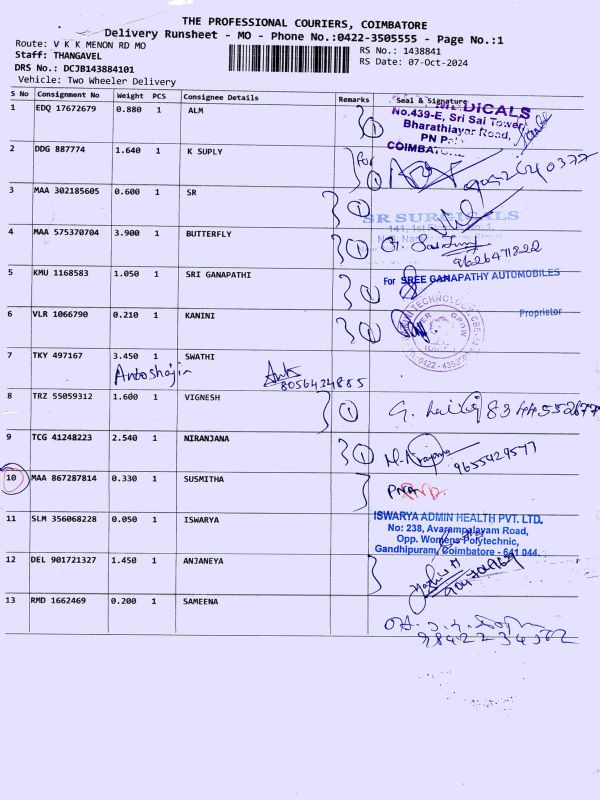 THE PROFESSIONAL COURIERS, COIMBATORE
Delivery Runsheet - MO - Phone No.:0422-3505555 - Page No.:1
Route: V K K MENON RD MO
Staff: THANGAVEL
DRS No.: DCJB143884101
Vehicle: Two Wheeler Delivery
RS No.: 1438841
RS Date: 07-Oct-2024
S No Consignment No Weight PCS Consignee Details Remarks Seal & Signature
1 EDQ 17672679 0.880 1 ALM
1
MEDICALS
No.439-E, Sri Sai Tower,
Bharathiayar Road,
COIMBATORE
2 DDG 887774 1.640 1 K SUPLY
for
1
3 MAA 302185605 0.600 1 SR
1
SR SURGICALS
4 MAA 575370704 3.900 1 BUTTERFLY
1
5 KMU 1168583 1.050 1 SRI GANAPATHI
1
For SREE GANAPATHY AUTOMOBILES
Proprietor
6 VLR 1066790 0.210 1 KANINI
1
7 TKY 497167 3.450 1 SWATHI
8056434885
8 TRZ 55059312 1.600 1 VIGNESH
1
9 TCG 41248223 2.540 1 NIRANJANA
1
9655429577
10 MAA 867287814 0.330 1 SUSMITHA
11 SLM 356068228 0.050 1 ISWARYA
ISWARYA ADMIN HEALTH PVT. LTD.
No: 238, Avarampalayam Road,
Opp. Womens Polytechnic,
Gandhipuram, Coimbatore - 641 044.
12 DEL 901721327 1.450 1 ANJANEYA
13 RMD 1662469 0.200 1 SAMEENA